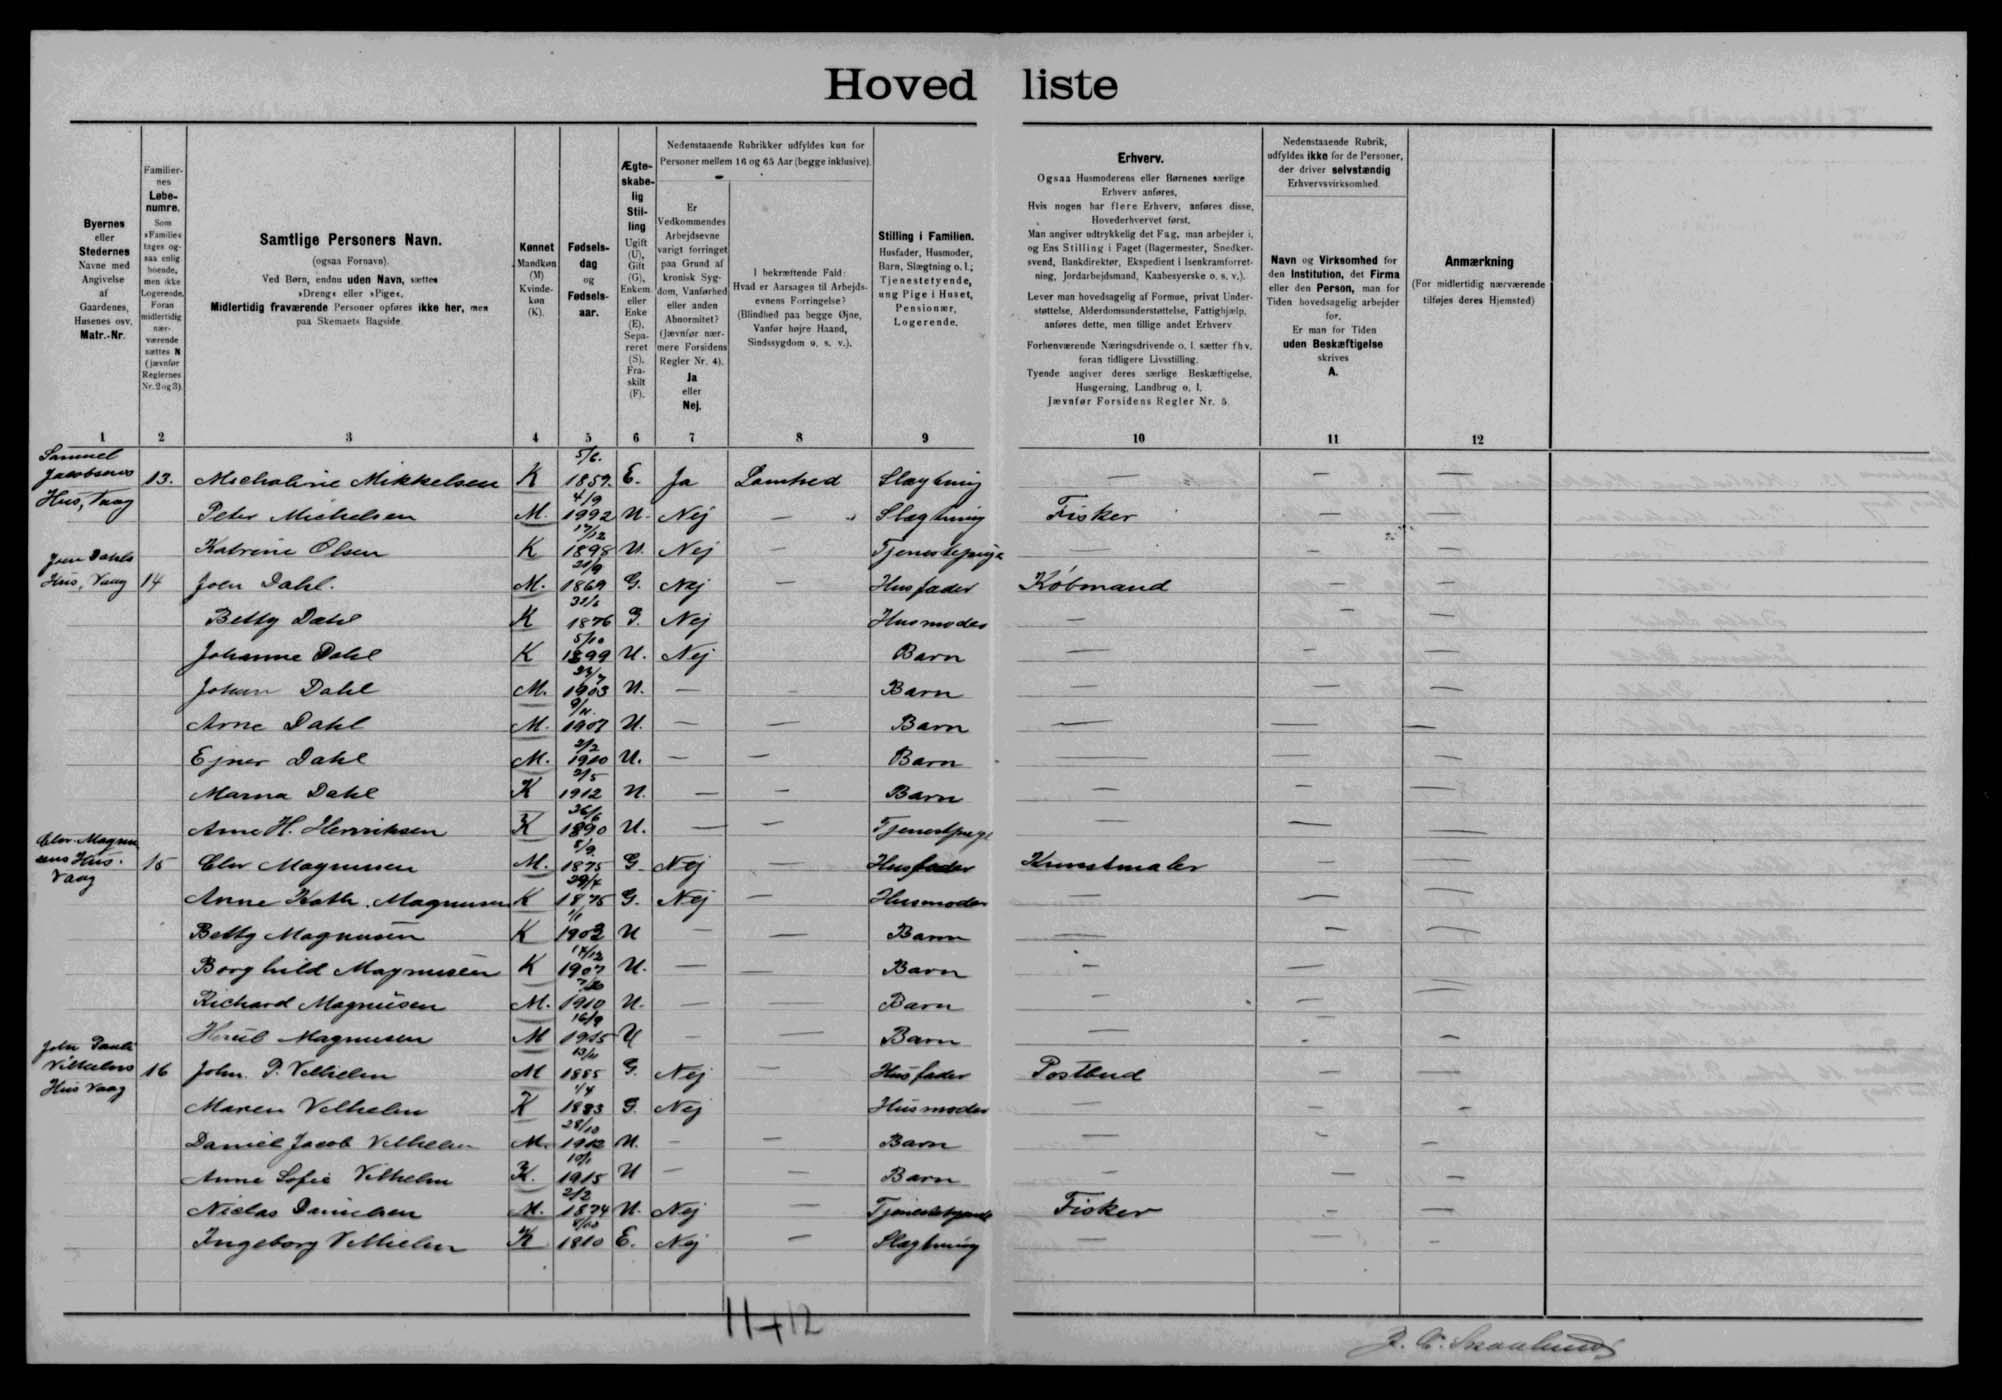 Hoved liste
Byernes eller Stedernes Navne med Angivelse af Gaardenes, Husenes osv. Matr.-Nr.
Familiernes Løbenumre. Som »Familie« tages ogsaa enlig boende, men ikke Logerende. Foran midlertidig nærværende sættes N (jævnfør Reglernes Nr. 2 og 3).
Samtlige Personers Navn. (ogsaa Fornavn). Ved Børn, endnu uden Navn, sættes »Dreng« eller »Pige«. Midlertidig fraværende Personer opføres ikke her, men paa Skemaets Bagside.
Kønnet Mandkøn (M) Kvindekøn (K).
Fødselsdag og Fødselsaar.
Ægteskabelig Stilling Ugift (U), Gift (G), Enkem. eller Enke (E), Separeret (S), Fraskilt (F).
Nedenstaaende Rubrikker udfyldes kun for Personer mellem 16 og 65 Aar (begge inklusive).
Er Vedkommendes Arbejdsevne varigt forringet paa Grund af kronisk Sygdom, Vanførhed eller anden Abnormitet? (Jævnfør nærmere Forsidens Regler Nr. 4). Ja eller Nej.
I bekræftende Fald: Hvad er Aarsagen til Arbejdsevnens Forringelse? (Blindhed paa begge Øjne, Vanfør højre Haand, Sindssygdom o. s. v.).
Stilling i Familien. Husfader, Husmoder, Barn, Slægtning o. l.; Tjenestetyende, ung Pige i Huset, Pensionær, Logerende.
Erhverv.
Ogsaa Husmoderens eller Børnenes særlige Erhverv anføres.
Hvis nogen har flere Erhverv, anføres disse, Hovederhvervet først.
Man angiver udtrykkelig det Fag, man arbejder i, og Ens Stilling i Faget (Bagermester, Snedkersvend, Bankdirektør, Ekspedient i Isenkramforretning, Jordarbejdsmand, Kaabesyerske o. s. v.).
Lever man hovedsagelig af Formue, privat Understøttelse, Alderdomsunderstøttelse, Fattighjælp, anføres dette, men tillige andet Erhverv
Forhenværende Næringsdrivende o. l. sætter fhv. foran tidligere Livsstilling.
Tyende angiver deres særlige Beskæftigelse, Husgerning, Landbrug o. l.
Jævnfør Forsidens Regler Nr. 5
Nedenstaaende Rubrik, udfyldes ikke for de Personer, der driver selvstændig Erhvervsvirksomhed.
Navn og Virksomhed for den Institution, det Firma eller den Person, man for Tiden hovedsagelig arbejder for. Er man for Tiden uden Beskæftigelse skrives A.
Anmærkning (For midlertidig nærværende tilføjes deres Hjemsted)
1 2 3 4 5 6 7 8 9 10 11 12
Samuel Jacobsens Hus, Vaag 13. Micholine Mikkelsen K 5/6. 1859. E. Ja Lamhed Slægtning — — —
Peter Michelsen M. 4/9 1992 U. Nej — Slægtning Fisker — —
Katrine Olsen K 17/12 1898 U. Nej — Tjenestepige — — —
Joen Dahls Hus, Vaag 14 Joen Dahl. M. 21/9 1869 G. Nej — Husfader Købmand
Betty Dahl K 1876 G. Nej Husmoder — — —
Johanne Dahl K 5/10 1899 U. Nej Barn — — —
Johan Dahl M. 1903 U. — — Barn — — —
Arne Dahl M. 9/11. 1907 U. — — Barn — — —
Ejner Dahl M. 2/2 1910 U. — — Barn — — —
Marna Dahl K 2/5 1912 U. — — Barn — — —
Anne H. Henriksen K 26/6 1890 U. — — Tjenestpige — — —
Vaag 15 Magnussen M. 5/9. 1875 G. Nej — Husfader Kunstmaler — —
Anne Kath. Magnusen K 29/4 1875 G. Nej — Husmoder — — —
Betty Magnusen K 1/1 1902 U — — Barn — — —
Borghild Magnusen K 14/12 1907 U. — — Barn — — —
Richard Magnusen M. 1910 U. — — Barn — — —
Magnusen M 16/9 1915 U — — Barn — — —
Vilhelms Hus Vaag 16 John. P. Vilhelm M 13/11 1885 G. Nej — Husfader Postbud — —
Maren Vilhelm K 1/4 1883 G. Nej — Husmoder — — —
Daniel Jacob Vilhelm M. 28/10 1912 U. — — Barn — — —
Anne Sofie Vilhelm K. 10/1 1915 U — — Barn — — —
Niclas Danielsen M. 2/2 1874 U. Nej — Tjenestetyende Fisker — —
Ingeborg Vilhelm K 1810 E. Nej — Slægtning — — —
11+12